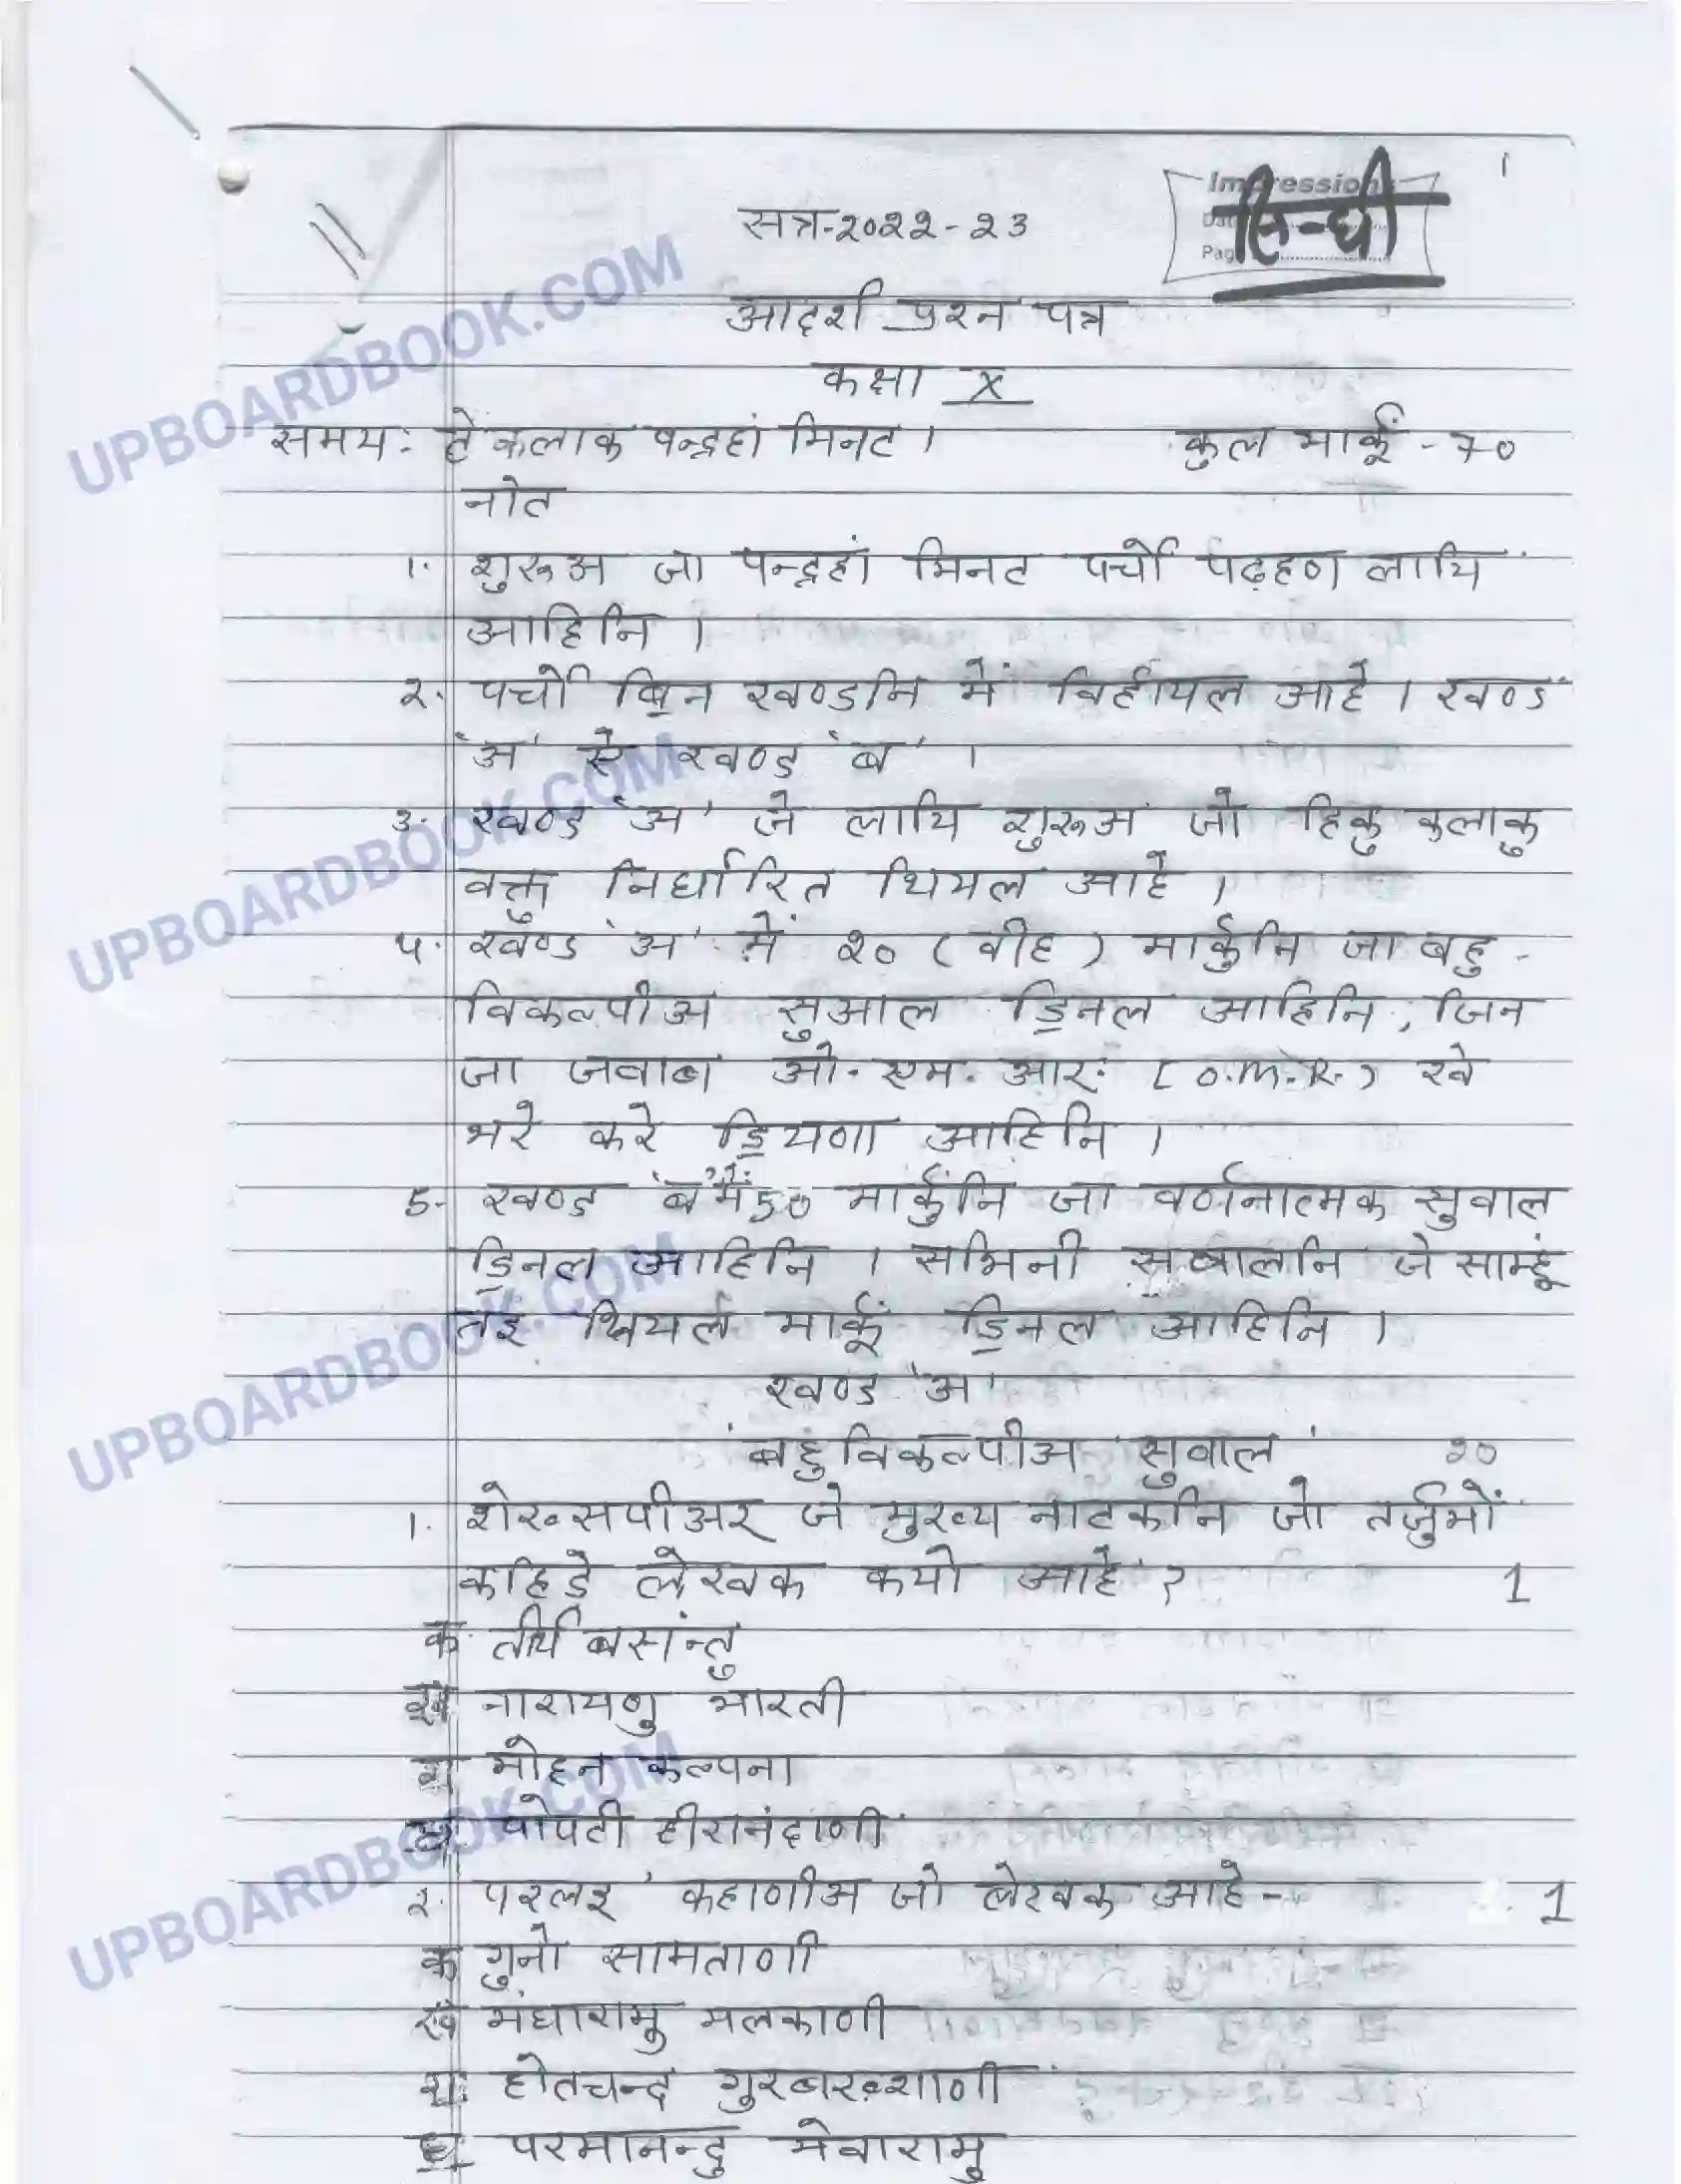 1
Impression
सिन्धी
सत्र-२०२२-२३
आदर्श प्रश्न पत्र
कक्षा X
समय: टे कलाक पन्द्रहां मिनट । कुल मार्कूं - 70
नोट
1. शुरूअ जा पन्द्रहां मिनट पर्चो पढ़हण लायि
आहिनि ।
२. पर्चो ॿिन खण्डनि में विर्हायल आहे । खण्ड
'अ' ऐं खण्ड 'ब' ।
३. खण्ड 'अ' जे लायि शुरूअ जो हिकु कलाकु
वक्तु निर्धारित थियल आहे ।
५. खण्ड 'अ' में २० (वीह) मार्कुनि जा बहु-
विकल्पीअ सुआल ॾिनल आहिनि, जिन
जा जवाब ओ. एम. आर. (O.M.R.) खे
भरे करे ॾियणा आहिनि ।
5. खण्ड 'ब' में 50 मार्कुनि जा वर्णनात्मक सुवाल
ॾिनल आहिनि । सभिनी सवालनि जे साम्हूं
तइ थियल मार्कूं ॾिनल आहिनि ।
खण्ड 'अ'
'बहुविकल्पीअ सुवाल' २०
1. शेख्सपीअर जे मुख्य नाटकनि जो तर्जुमों
कहिड़े लेखक कयो आहे ? 1
क. तीर्थ बसंन्तु
ख नारायणु भारती
ग मोहन कल्पना
घ पोपटी हीरानंदाणी
२. 'परलइ' कहाणीअ जो लेखक आहे- 1
क गुनो सामताणी
ख मंघारामु मलकाणी
ग होतचन्द गुरबख़्शाणी
घ परमानन्दु मेवारामु
UPBOARDBOOK.COM
UPBOARDBOOK.COM
UPBOARDBOOK.COM
UPBOARDBOOK.COM